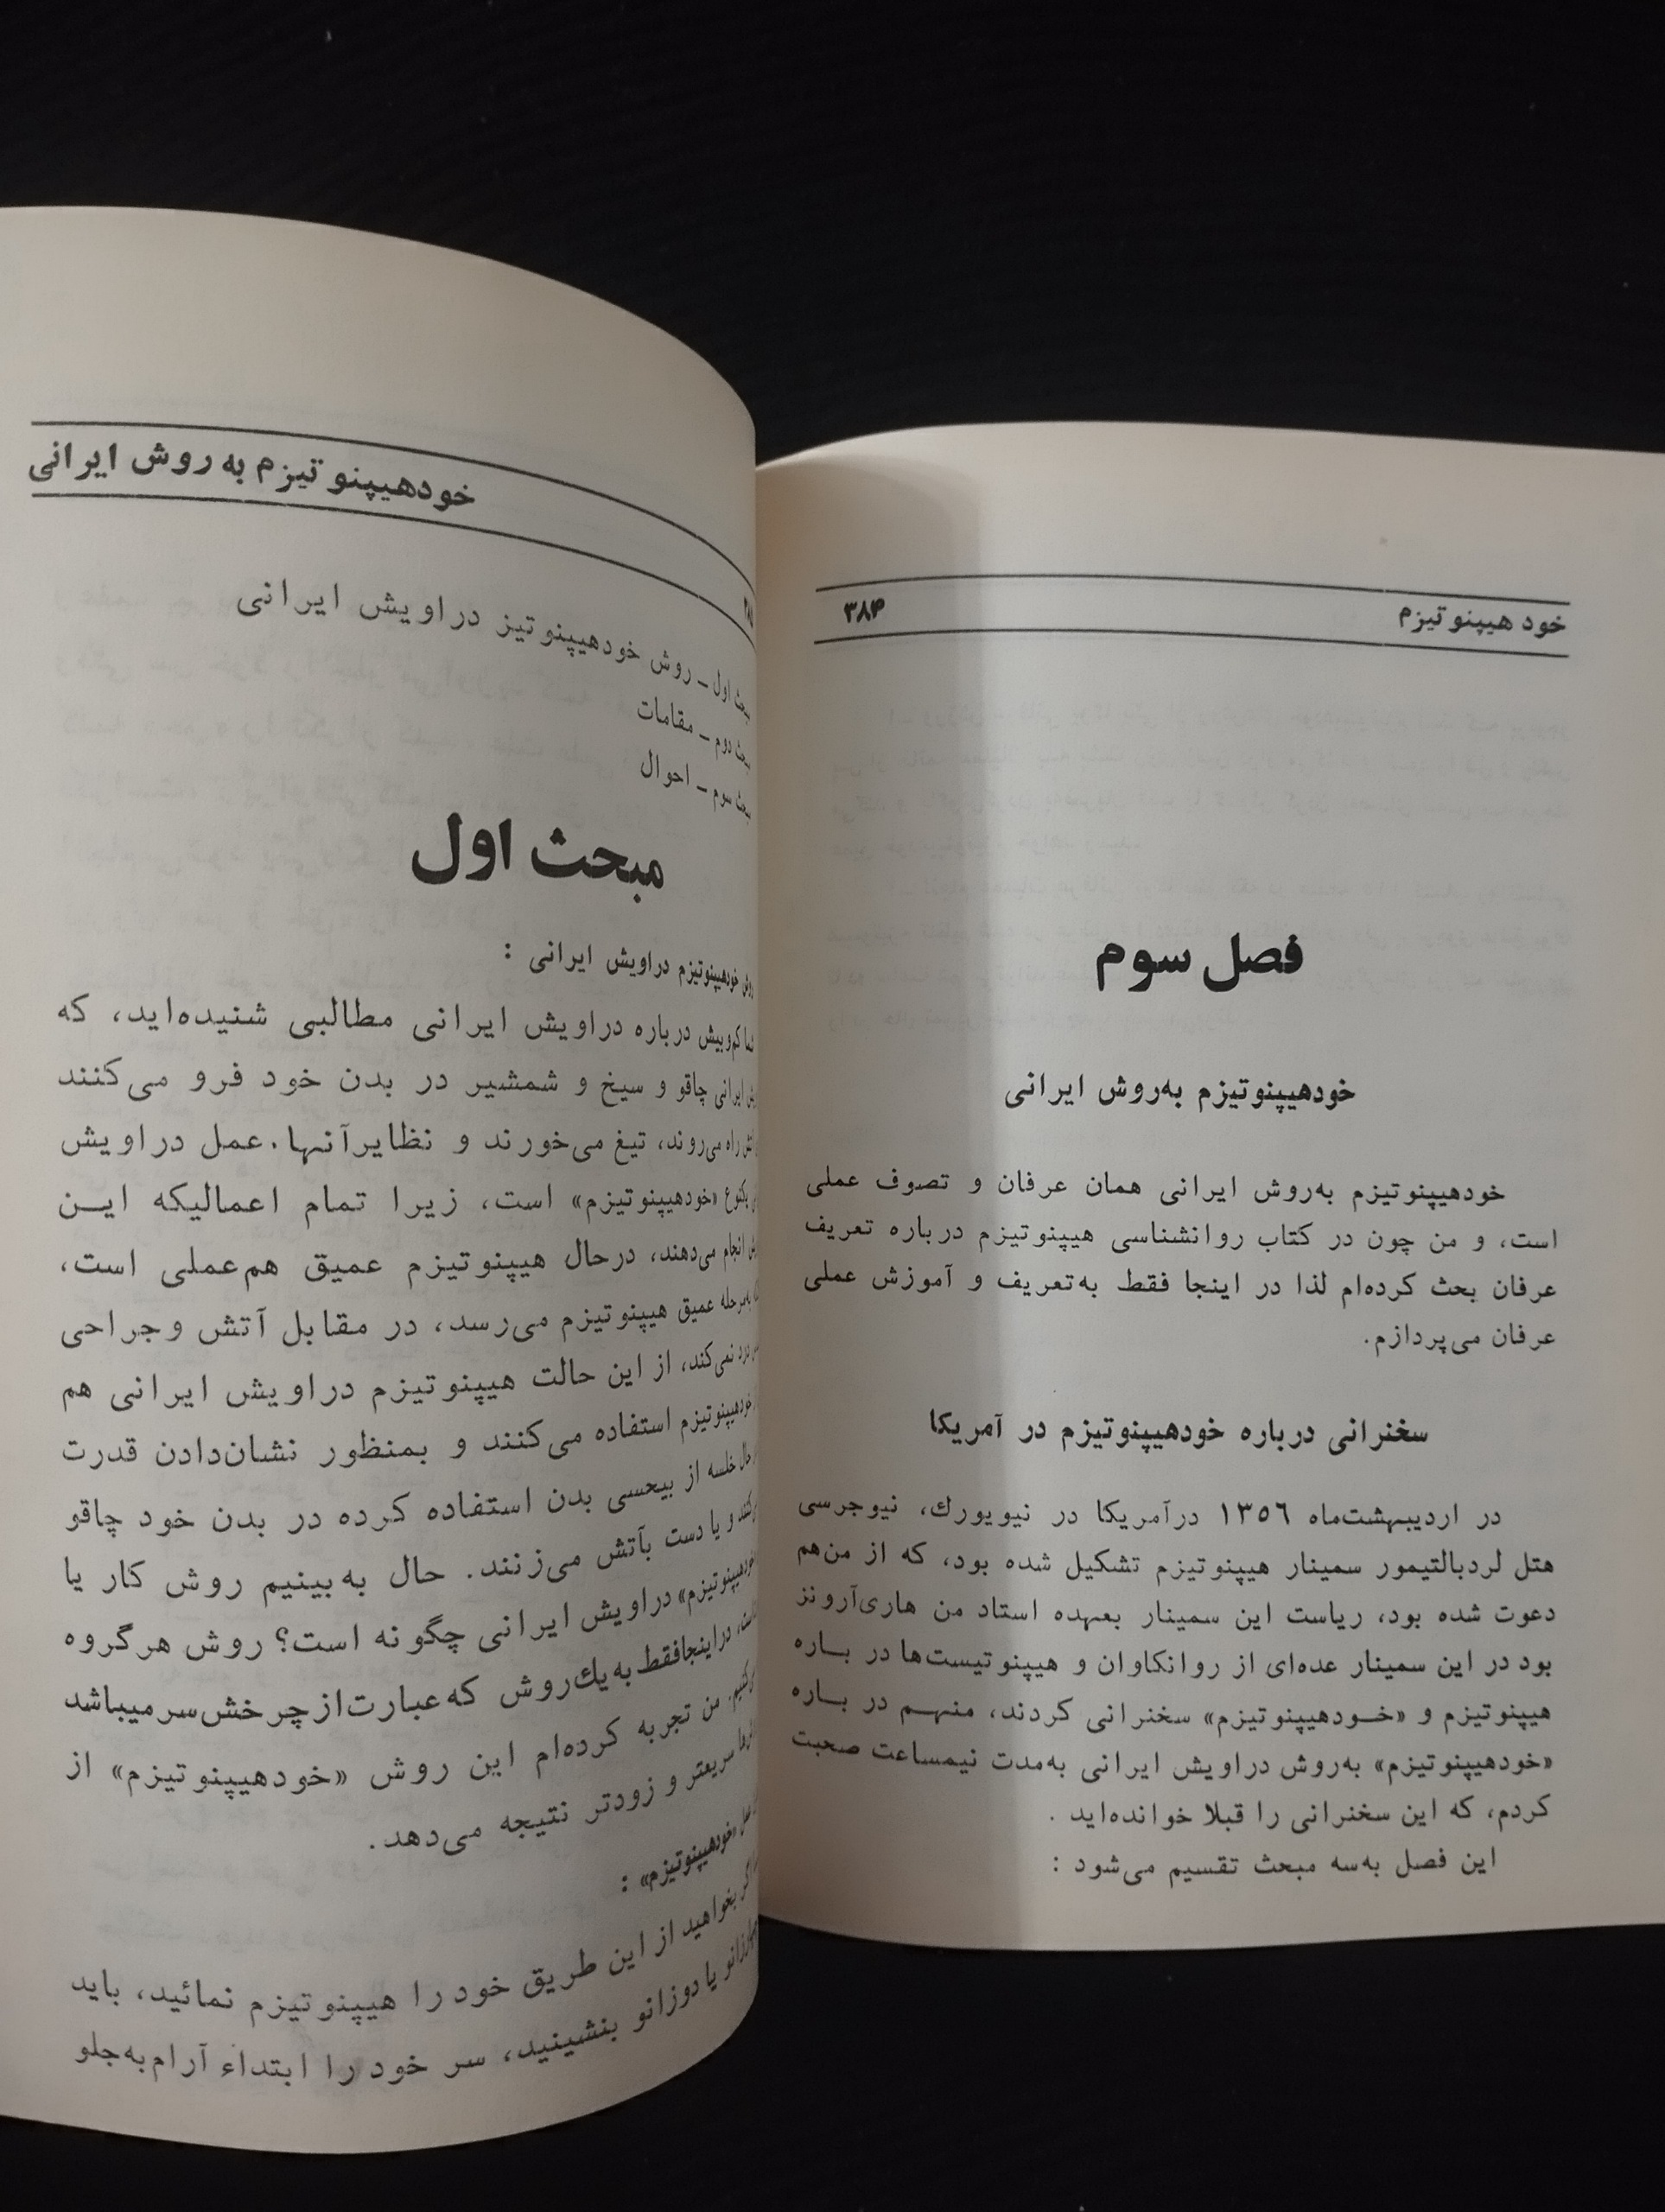 خود هیپنوتیزم
۳۸۴
فصل سوم
خودهیپنوتیزم به‌روش ایرانی
خودهیپنوتیزم به‌روش ایرانی همان عرفان و تصوف عملی
است، و من چون در کتاب روانشناسی هیپنوتیزم درباره تعریف
عرفان بحث کرده‌ام لذا در اینجا فقط به‌تعریف و آموزش عملی
عرفان می‌پردازم.
سخنرانی درباره خودهیپنوتیزم در آمریکا
در اردیبهشت‌ماه ۱۳۵٦ درآمریکا در نیویورك، نیوجرسی
هتل لردبالتیمور سمینار هیپنوتیزم تشکیل شده بود، که از من‌هم
دعوت شده بود، ریاست این سمینار بعهده استاد من هاری‌آرونز
بود در این سمینار عده‌ای از روانکاوان و هیپنوتیست‌ها در بــاره
هیپنوتیزم و «خــودهیپنوتیزم» سخنرانی کردند، منهــم در بــاره
«خودهیپنوتیزم» به‌روش دراویش ایرانی به‌مدت نیمساعت صحبت
کردم، که این سخنرانی را قبلا خوانده‌اید .
این فصل به‌سه مبحث تقسیم می‌شود :
خودهیپنوتیزم به روش ایرانی
اول ــ روش خودهیپنوتیز دراویش ایرانی
دوم ــ مقامات
سوم ــ احوال
مبحث اول
خودهیپنوتیزم دراویش ایرانی :
کم‌وبیش درباره دراویش ایرانی مطالبی شنیده‌اید، که
ایرانی چاقو و سیخ و شمشیر در بدن خود فرو می‌کنند
راه می‌روند، تیغ می‌خورند و نظایرآنها. عمل دراویش
یکنوع «خودهیپنوتیزم» است، زیرا تمام اعمالیکه ایــن
انجام می‌دهند، درحال هیپنوتیزم عمیق هم‌عملی است،
به‌مرحله عمیق هیپنوتیزم می‌رسد، در مقابل آتش وجراحی
درد نمی‌کند، از این حالت هیپنوتیزم دراویش ایرانی هم
خودهیپنوتیزم استفاده می‌کنند و بمنظور نشان‌دادن قدرت
حال خلسه از بیحسی بدن استفاده کرده در بدن خود چاقو
و یا دست بآتش می‌زنند. حال به‌بینیم روش کار یا
خودهیپنوتیزم» دراویش ایرانی چگونه است؟ روش هرگروه
دراینجافقط به‌یك‌روش که‌عبارت‌ازچرخش‌سرمیباشد
من تجربه کرده‌ام این روش «خودهیپنوتیزم» از
سریعتر و زودتر نتیجه می‌دهد.
«خودهیپنوتیزم» :
بخواهید از این طریق خود را هیپنوتیزم نمائید، باید
یا دوزانو بنشینید، سر خود را ابتداء آرام‌به‌جلو